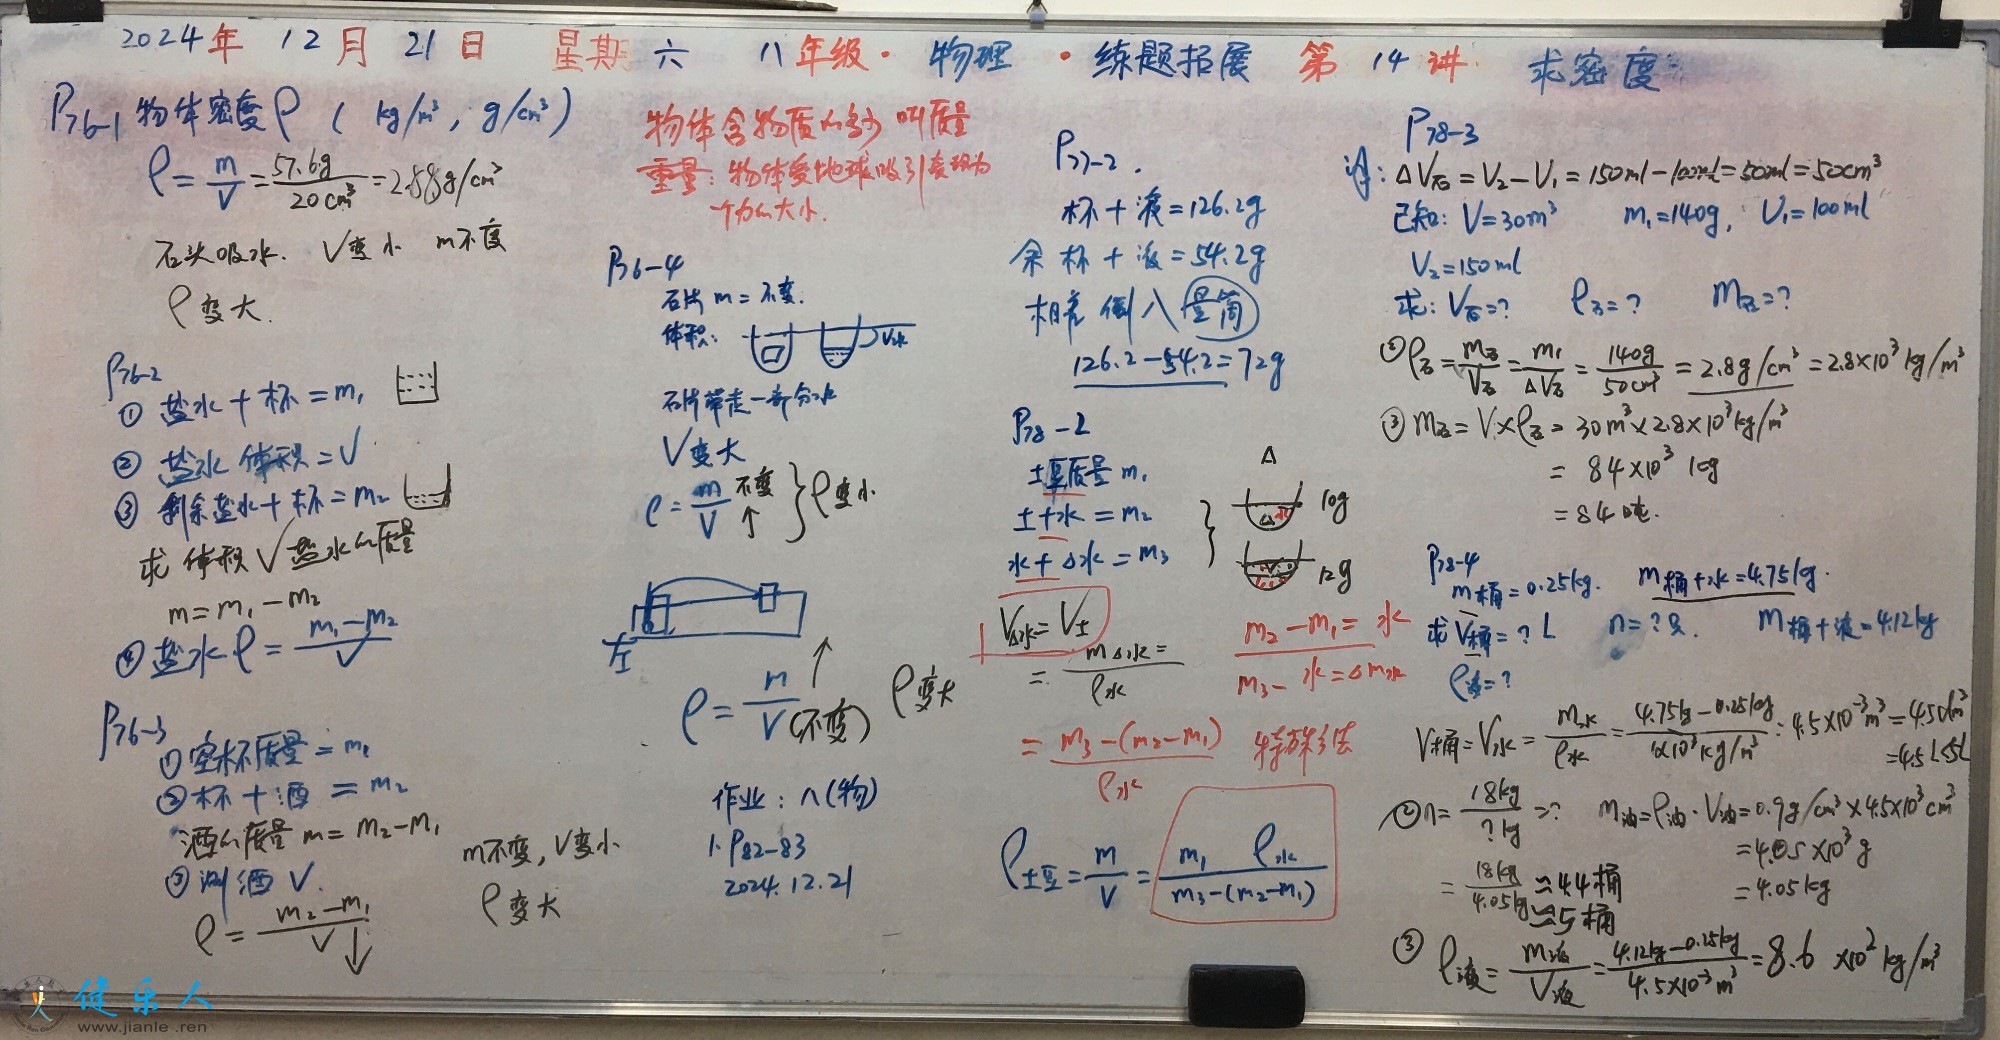 2024年12月21日 星期六 八年级·物理·练题拓展 第14讲 求密度
P76-1 物体密度ρ ( kg/m³, g/cm³)
ρ=m/V=57.6g/20cm³=2.88g/cm³
石头吸水. V变小 m不变
ρ变大.
P76-2
① 盐水+杯=m₁
② 盐水体积=V
③ 剩余盐水+杯=m₂
求体积V盐水的质量
m=m₁-m₂
④ 盐水ρ=m₁-m₂/V
P76-3
① 空杯质量=m₁
② 杯+酒=m₂
酒的质量m=m₂-m₁
③ 测酒V.
ρ=m₂-m₁/V↓
m不变,V变小
ρ变大
物体含物质的多少叫质量
重量:物体受地球吸引表现为
一个力的大小.
P76-4
石片m=不变.
体积: V水
石片带走一部分水
V变大
ρ=m不变/V↑ }ρ变小
左
ρ=m/V(不变)↑ ρ变大
作业:八(物)
1. P82-83
2024.12.21
P77-2.
杯+液=126.2g
余杯+液=54.2g
相差倒入量筒
126.2-54.2=72g
P78-2
土豆质量m₁
土+水=m₂
水+Δ水=m₃
Δ
10g
12g
VΔ水=V土
=mΔ水=/ρ水
m₂-m₁=水
m₃-水=Δm水
=m₃-(m₂-m₁)/ρ水 特殊方法
ρ土豆=m/V=m₁ρ水/m₃-(m₂-m₁)
P78-3
:ΔV石=V₂-V₁=150ml-100ml=50ml=50cm³
已知:V=30m³ m₁=140g, V₁=100ml
V₂=150ml
求:V石=? ρ石=? m石=?
② ρ石=m石/V石=m₁/ΔV石=140g/50cm³=2.8g/cm³=2.8×10³kg/m³
③ m石=V×ρ石=30m³×2.8×10³kg/m³
=84×10³kg
=84吨.
P78-4
m桶=0.25kg. m桶+水=4.75kg.
求V桶=?L n=?. m桶+液=4.12kg
ρ液=?
V桶=V水=m水/ρ水=4.75kg-0.25kg/1×10³kg/m³=4.5×10⁻³m³=4.5dm³
=4.5L<5L
② n=18kg/?kg=? m油=ρ油·V油=0.9g/cm³×4.5×10³cm³
=4.05×10³g
=18kg/4.05kg≈4.4桶
=4.05kg
≈5桶
③ ρ液=m液/V液=4.12kg-0.25kg/4.5×10⁻³m³=8.6×10²kg/m³
健乐人
www.jianle.ren